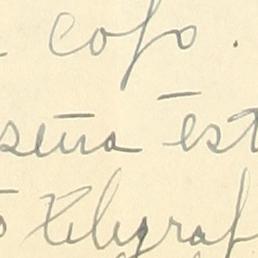 cofo.
seña est
telegraf